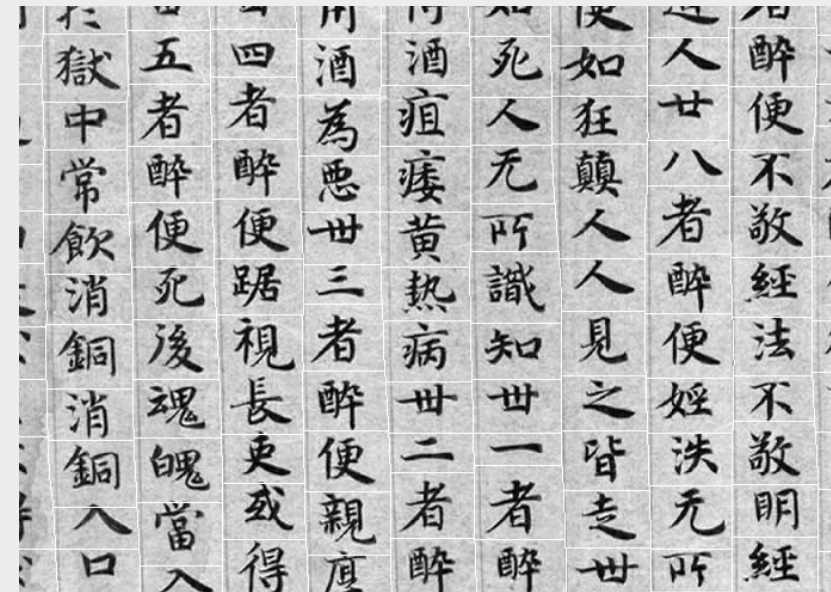 醉便不敬經法不敬明經
人廿八者醉便婬泆无所
如狂顛人人見之皆走丗
死人无所識知丗一者醉
酒疸痿黄热病丗二者醉
酒為悪丗三者醉便親
四者醉便踞視長吏或得
五者醉便死後魂魄當入
獄中常飲消銅消銅入口